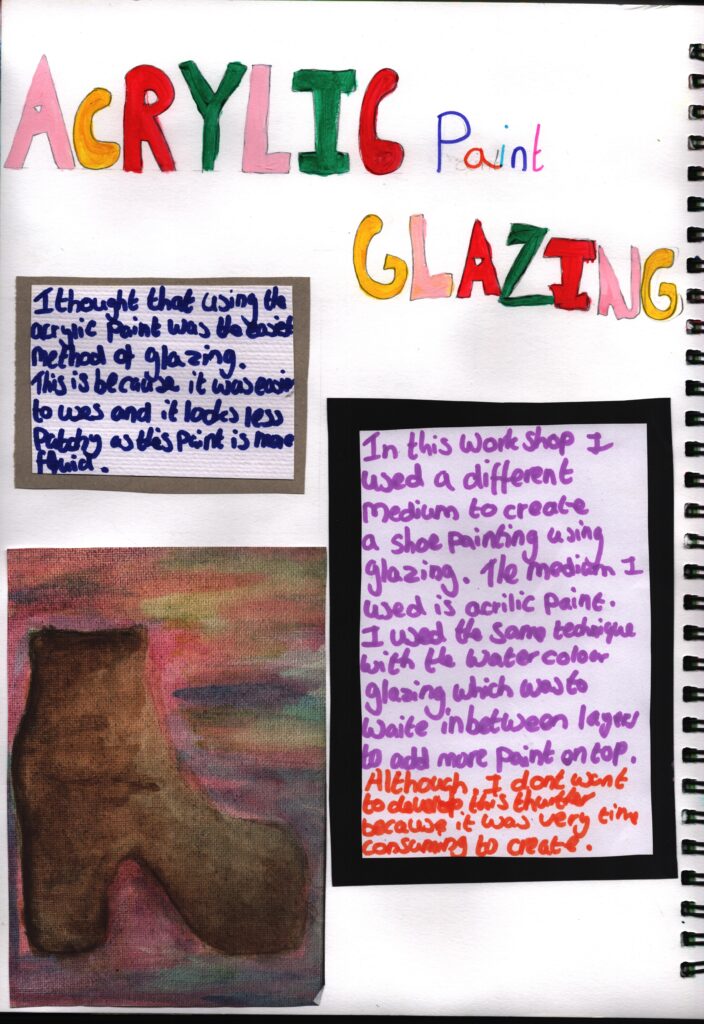 ACRYLIC Paint
GLAZING
I thought that using the
acrylic paint was the easist
method of glazing.
This is because it was easier
to wes and it looks less
Patchy as this paint is more
fluid.
In this workshop I
used a different
medium to create
a shoe painting using
glazing. The medium I
used is acrilic paint.
I used the same technique
with the water colour
glazing which was to
waite inbetween layers
to add more paint on top.
Although, I dont want
to develop this thurter
because it was very time
consuming to create.